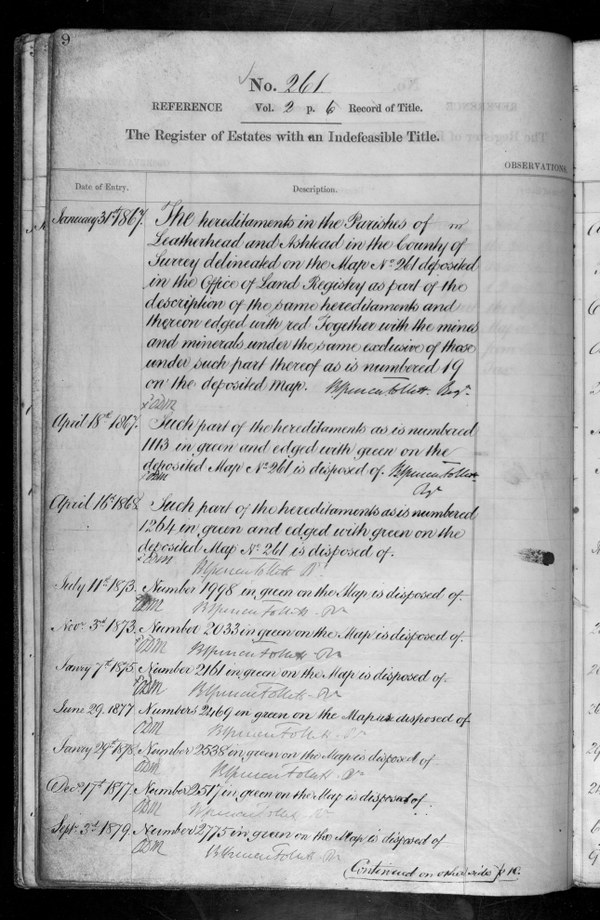 9
No. 261
REFERENCE Vol. 2 p. 6 Record of Title.
The Register of Estates with an Indefeasible Title.
OBSERVATIONS.
Date of Entry.
Description.
January 31st 1867. The hereditaments in the Parishes of
Leatherhead and Ashtead in the County of
Surrey delineated on the Map No 261 deposited
in the Office of Land Registry as part of the
description of the same hereditaments and
thereon edged with red Together with the mines
and minerals under the same exclusive of those
under such part thereof as is numbered 19
on the deposited map. BSpencerfollett Regr.
April 18th 1867. Such part of the hereditaments as is numbered
1113 in green and edged with green on the
deposited Map No 261 is disposed of. BSpencerfollett
Regr
April 16th 1868. Such part of the hereditaments as is numbered
1264 in green and edged with green on the
deposited Map No 261 is disposed of.
BSpencerfollett Rr
July 11th 1873. Number 1998 in green on the Map is disposed of.
BSpencerFollett Rr
Novr. 3rd 1873. Number 2033 in green on the Map is disposed of.
BSpencerFollett Rr
Janry 7th 1875. Number 2161 in green on the Map is disposed of.
BSpencerFollett Rr
June 29. 1877. Numbers 2469 in green on the Map is disposed of.
BSpencerFollett Rr
Janry 29th 1878. Number 2538 in green on the Map is disposed of.
BSpencerFollett Rr
Decr. 17th 1877. Number 2517 in green on the Map is disposed of.
BSpencerFollett Rr
Septr. 3rd 1879. Number 2775 in green on the Map is disposed of
BSpencerFollett Rr
(Continued on other side p 10.